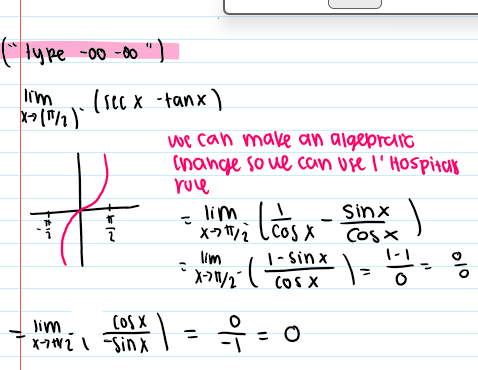 ("type -∞ -∞")
lim x→(π/2)⁻ (sec x - tan x)
we can make an algebraic
change so we can use l'Hospitals
rule
-π/2 π/2
= lim x→π/2⁻ (1/cos x - sin x/cos x)
= lim x→π/2⁻ (1 - sin x/cos x) = 1-1/0 = 0/0
= lim x→π/2⁻ (cos x/-sin x) = 0/-1 = 0